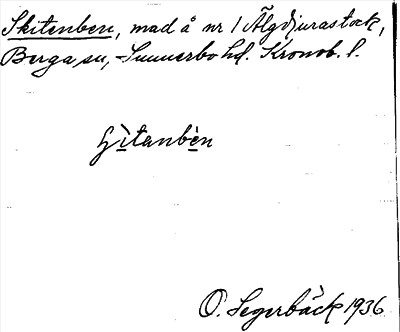 Skitenben, mad å nr 1 Älgdjurastock,
Berga sn, Sunnerbo hd. Kronob. l.
ʃìtanbèn
O. Segerbäck 1936